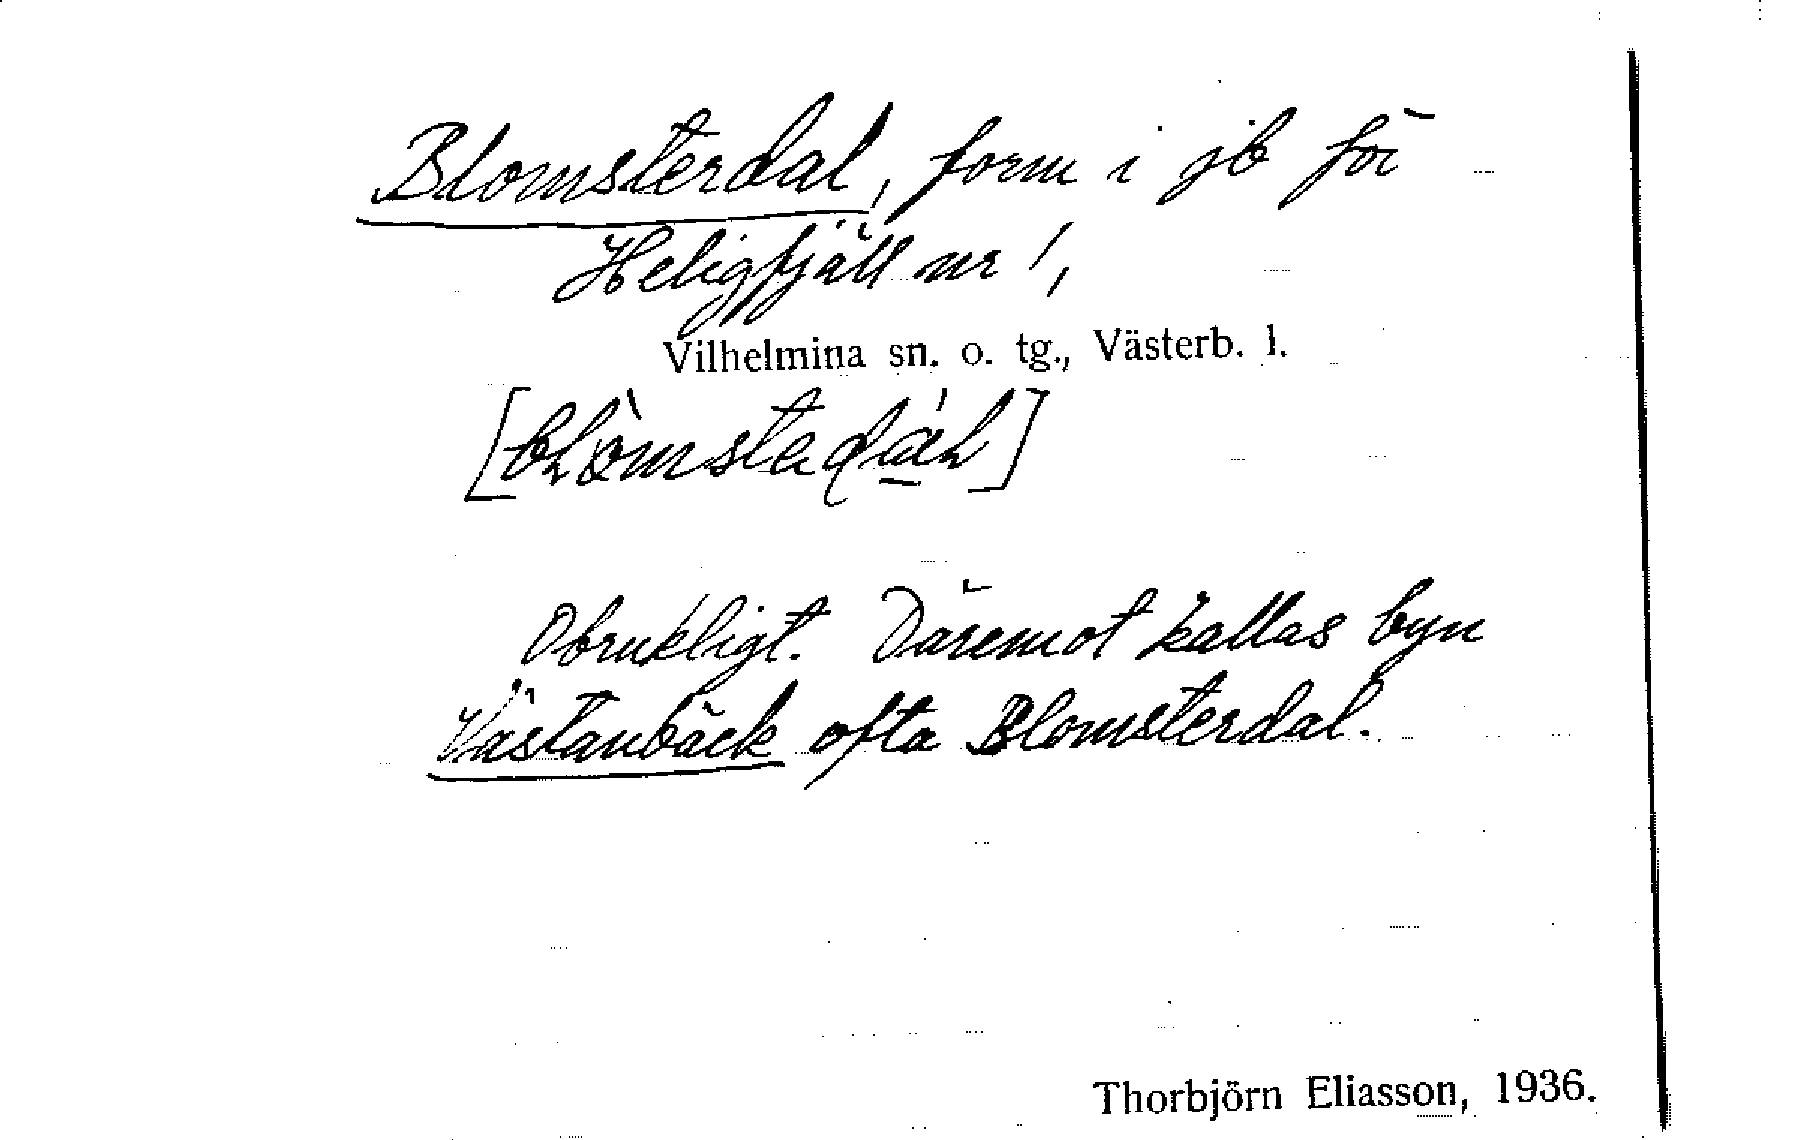 Blomsterdal, form i jb för
Heligfjäll nr 1,
Vilhelmina sn. o. tg., Västerb. l.
Obrukligt. Däremot kallas byn
Västanbäck ofta Blomsterdal.
Thorbjörn Eliasson, 1936.